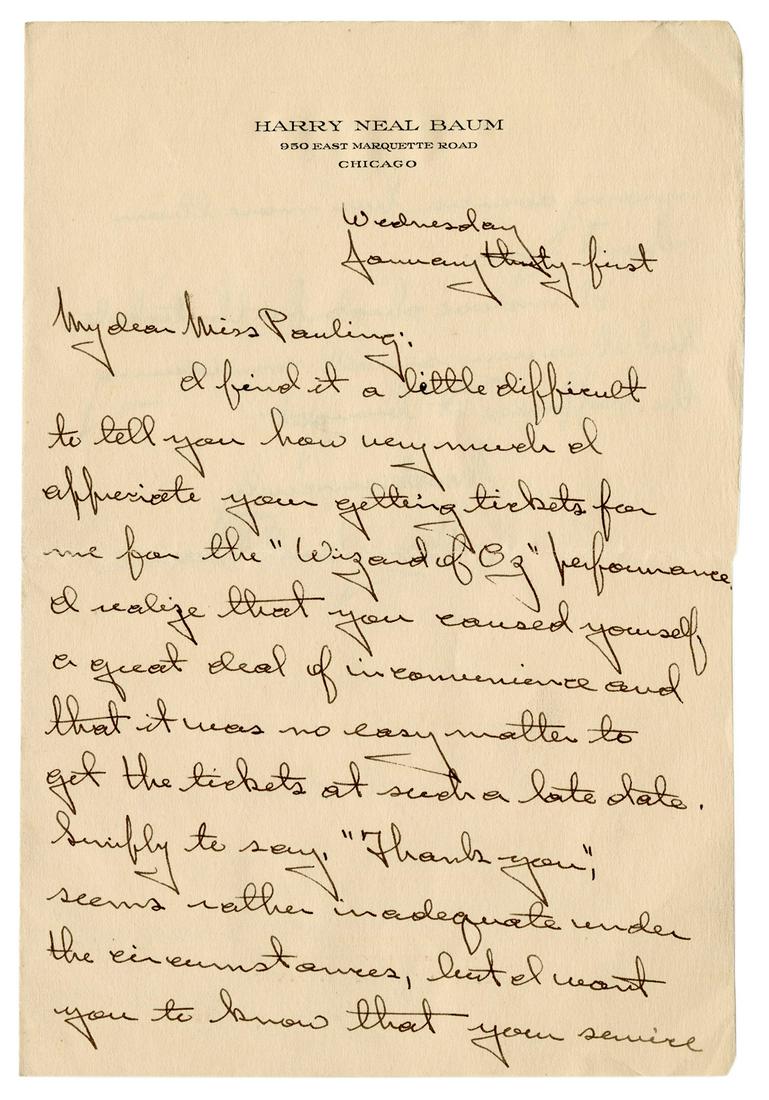 HARRY NEAL BAUM
950 EAST MARQUETTE ROAD
CHICAGO
Wednesday
January thirty-first
My dear Miss Pauling:
I find it a little difficult
to tell you how very much I
appreciate your getting tickets for
me for the "Wizard of Oz" performance.
I realize that you caused yourself
a great deal of inconvenience and
that it was no easy matter to
get the tickets at such a late date.
Simply to say, "Thank you",
seems rather inadequate under
the circumstances, but I want
you to know that your service